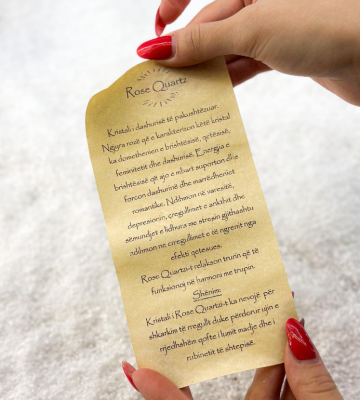 Rose Quartz
Kristali i dashurisë të pakushtëzuar.
Ngjyra rozë që e karakterizon këtë kristal
ka domethënien e brishtësisë, qetësisë,
feminitetit dhe dashurisë. Energjia e
brishtësisë që ajo e mbart suporton dhe
forcon dashurinë dhe marrëdhëniet
romantike. Ndihmon në varësitë,
depresionin, çrregullimet e ankthit dhe
sëmundjet e lidhura me stresin gjithashtu
ndihmon në çrregullimet e të ngrënit nga
efekti qetësues.
Rose Quartz-i relakson trurin që të
funksionoj në harmoni me trupin.
Shënim:
Kristali i Rose Quartz-it ka nevojë për
shkarkim të rregullt duke përdorur ujin e
rrjedhshëm qoftë i lumit madje dhe i
rubinetit të shtëpisë.